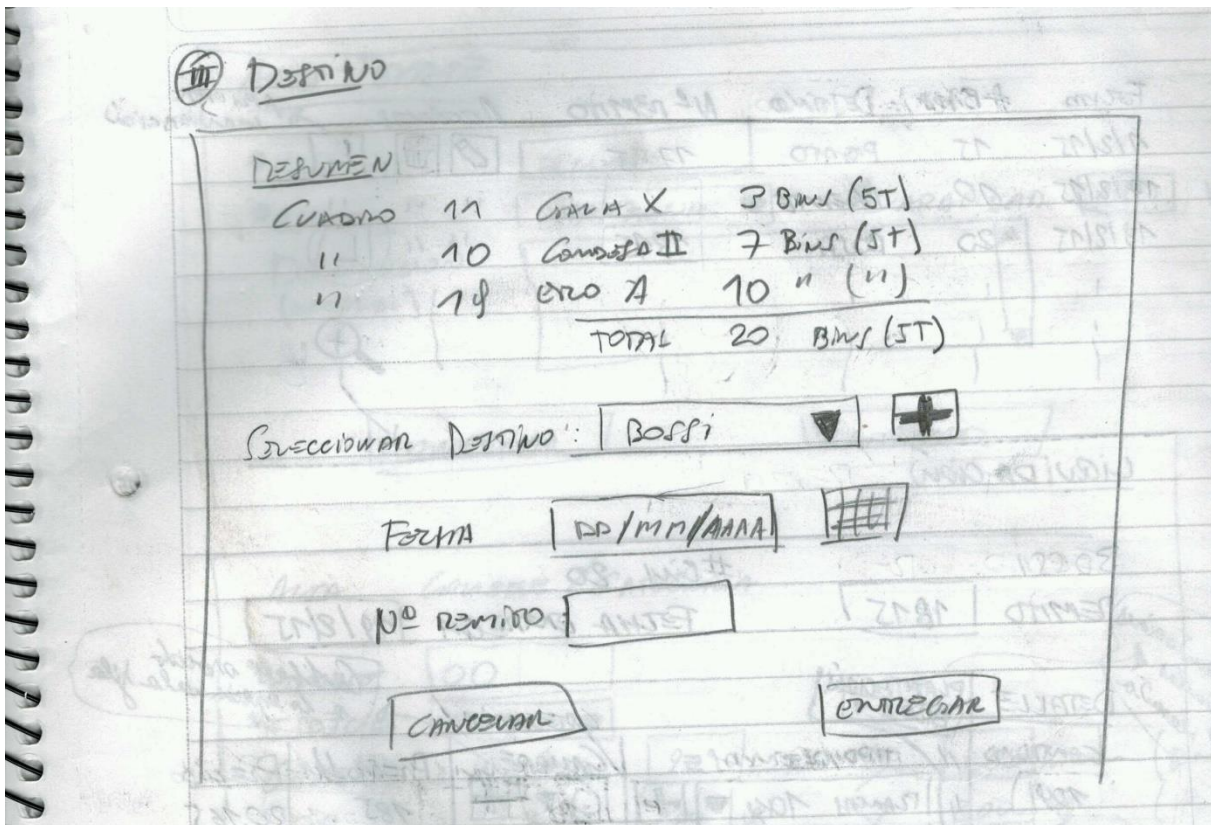 III DESTINO
RESUMEN
CUADRO 11 GALA X 3 BINS (5T)
" 10 CONDESA II 7 BINS (5T)
" 18 ERO A 10 " (")
TOTAL 20 BINS (5T)
SELECCIONAR DESTINO: BOSSI
FECHA DD/MM/AAAA
Nº REMITO
CANCELAR ENTREGAR